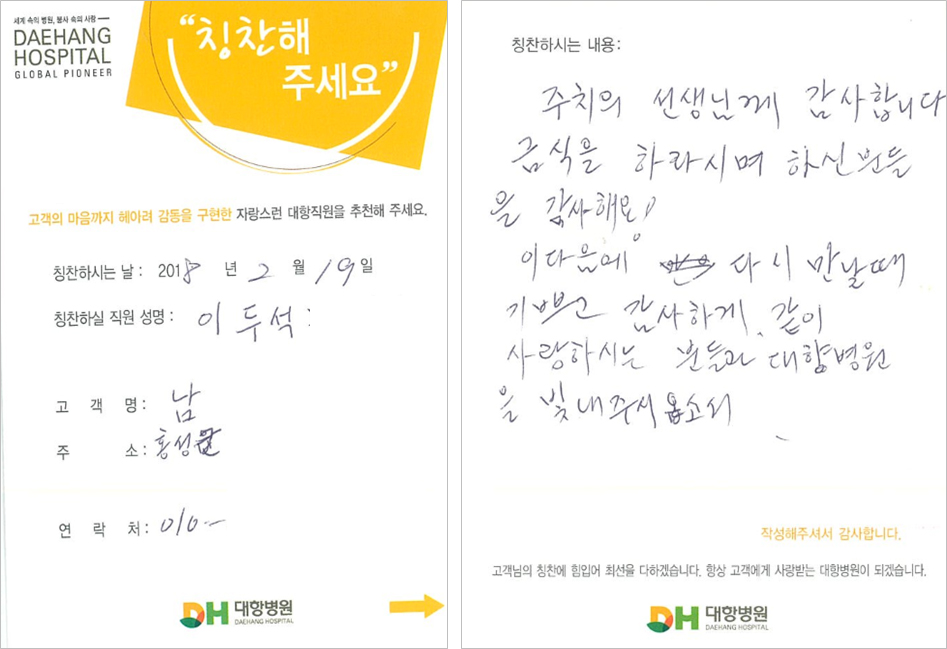 세계 속의 병원, 봉사 속의 사람
DAEHANG
HOSPITAL
GLOBAL PIONEER
"칭찬해
주세요"
고객의 마음까지 헤아려 감동을 구현한 자랑스런 대항직원을 추천해 주세요.
칭찬하시는 날 : 2018 년 2 월 19 일
칭찬하실 직원 성명 : 이두석
고 객 명 : 남
주 소 : 홍성군
연 락 처 : 010-
DH 대항병원
DAEHANG HOSPITAL
칭찬하시는 내용 :
주치의 선생님께 감사합니다
금식을 하라시며 하신 분들
을 감사해요!
이다음에 다시 만날때
기쁘고 감사하게, 같이
사랑하시는 분들과 대항병원
을 빛내주시옵소서
작성해주셔서 감사합니다.
고객님의 칭찬에 힘입어 최선을 다하겠습니다. 항상 고객에게 사랑받는 대항병원이 되겠습니다.
DH 대항병원
DAEHANG HOSPITAL